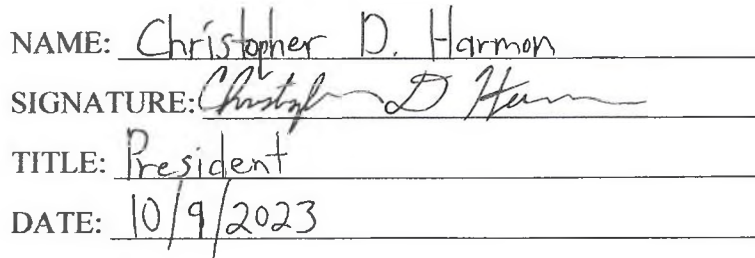 NAME: Christopher D. Harmon
SIGNATURE: Christoph D Harm
TITLE: President
DATE: 10/9/2023